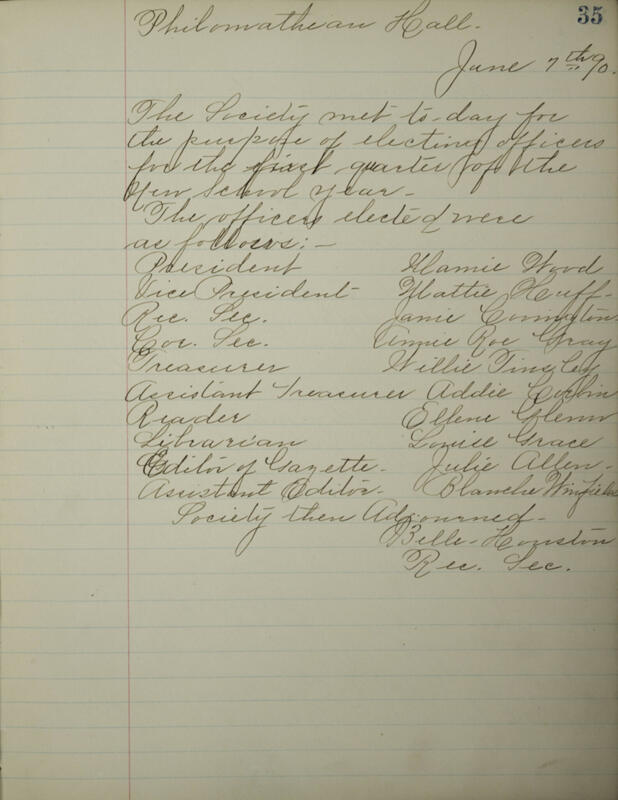 35
Philomathean Hall.
June 7th 90.
The Society met to-day for
the purpose of electing officers
for the first quarter of the
New School year-
The officers elected were
as follows:-
President Mamie Wood
Vice President- Mattie Huff-
Rec. Sec. Janie Covington
Cor. Sec. Annie Roe Gray
Treasurer Willie Tinsley
Assistant Treasurer Addie Corbin
Reader Ellene Glenn
Librarian Louise Grace
Editor of Gazette- Julie Allen-
Assistant Editor- Blanche Winfield
Society then Adjourned-
Belle Houston
Rec. Sec.